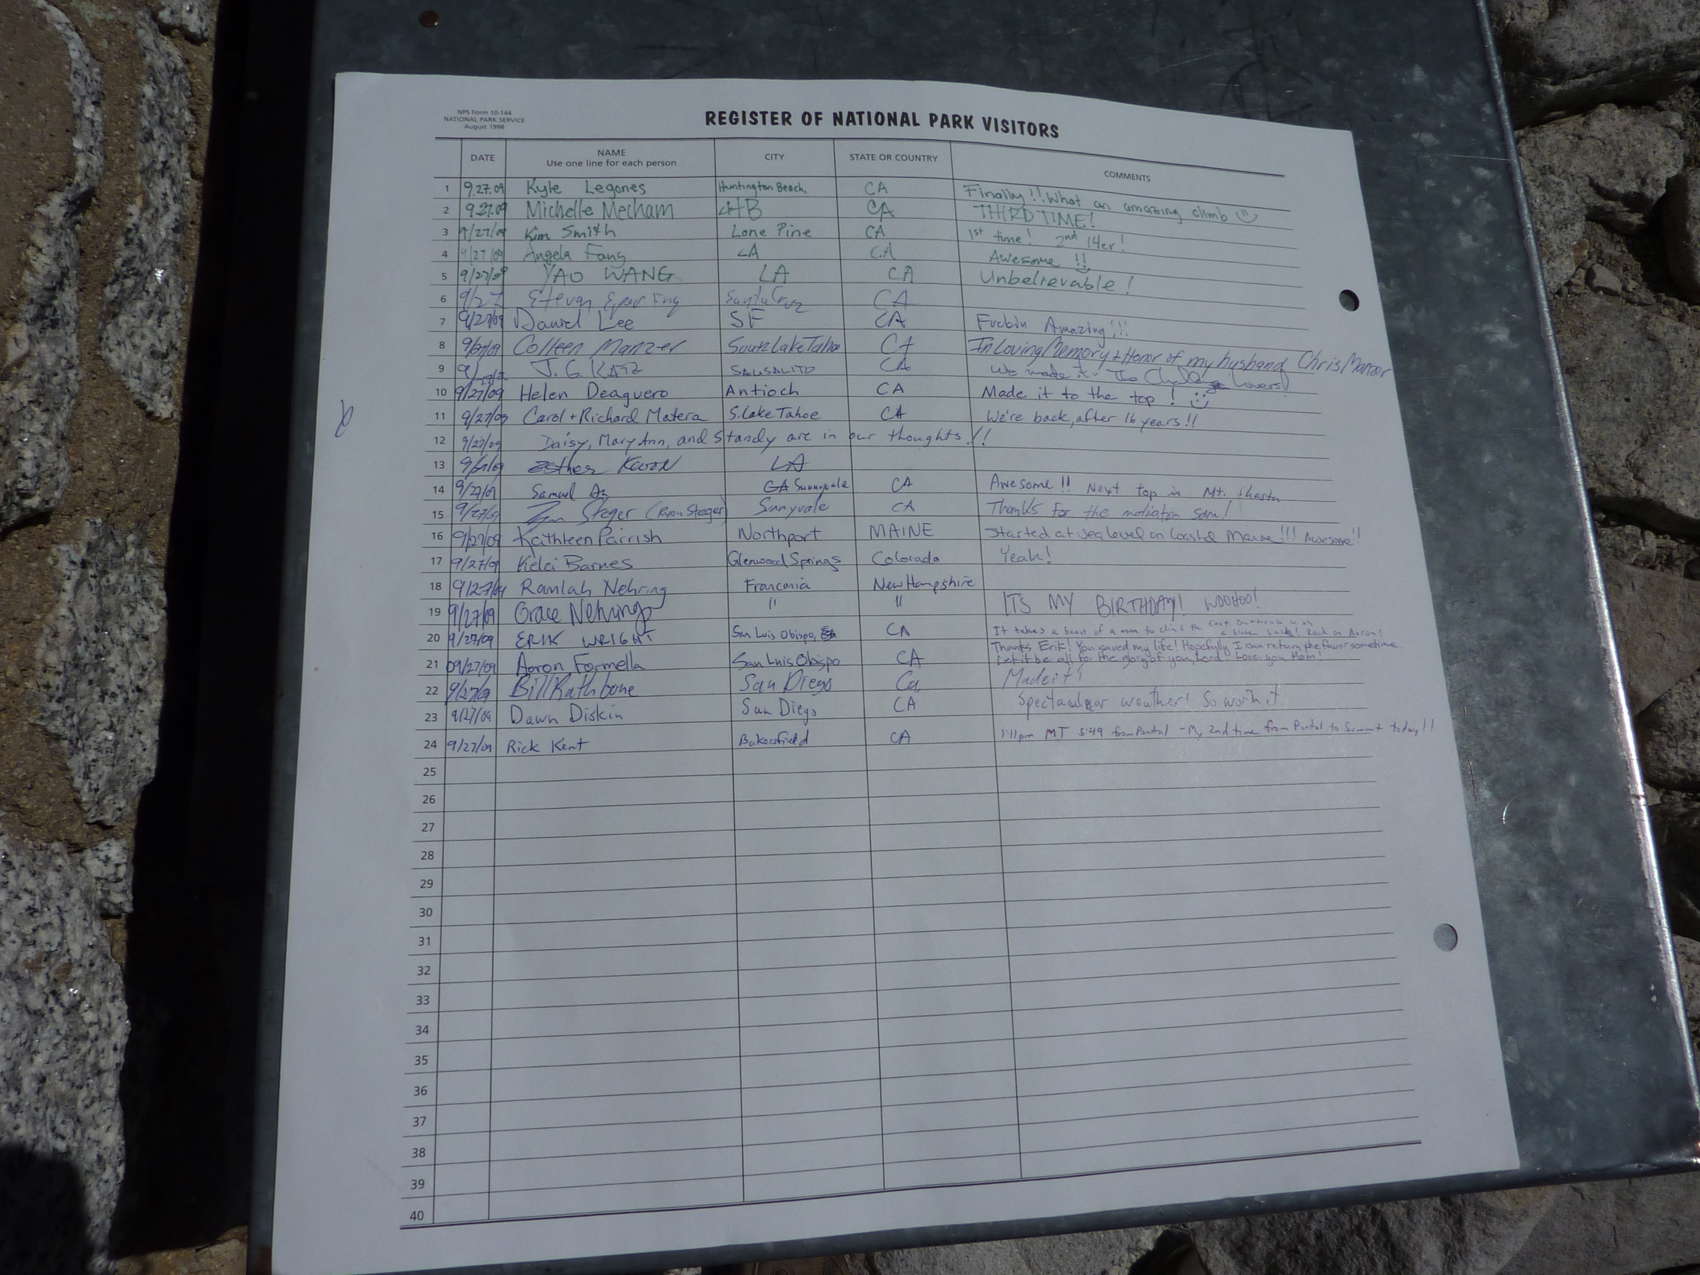 NPS Form 10-144
NATIONAL PARK SERVICE
August 1998
REGISTER OF NATIONAL PARK VISITORS
DATE NAME CITY STATE OR COUNTRY COMMENTS
Use one line for each person
1 9.27.09 Kyle Legones Huntington Beach, CA Finally!! What an amazing climb
2 9.27.09 Michelle Mecham HB CA THIRD TIME!
3 9/27/09 Kim Smith Lone Pine CA 1st time! 2nd 14er!
4 9/27/09 Angela Fang LA CA Awesome!!
5 9/27/09 YAO WANG LA CA Unbelievable!
6 9/27 CA
7 9/27/09 Daniel Lee SF CA Fuckin Amazing!!!
8 9/27/09 Colleen Manzer South Lake Tahoe CA In Loving Memory + Honor of my husband Chris Manzer
9 J.G. KATZ SAUSALITO CA We made it
10 9/27/09 Helen Deaguero Antioch CA Made it to the top!
11 9/27/09 Carol + Richard Matera S. Lake Tahoe CA We're back, after 16 years!!
12 9/27/09 Daisy, Mary Ann, and Standy are in our thoughts!!
13 Esther Kwon LA
14 9/27/09 Samuel Sunnyvale CA Awesome!! Next top is Mt. Shasta
15 9/27/09 Steger (Ryan Steger) Sunnyvale CA Thanks for the motivation Sam!
16 9/27/09 Kathleen Parrish Northport MAINE Started at sea level on Coastal Maine!!! Awesome!!
17 9/27/09 Kelci Barnes Glenwood Springs Colorado Yeah!
18 9/27/09 Ramlah Nehring Franconia New Hampshire
19 9/27/09 Grace Nehring " " ITS MY BIRTHDAY! WOOHOO!
20 9/27/09 ERIK WRIGHT San Luis Obispo, CA It takes a beast of a man to climb the
21 09/27/09 Aaron Formella San Luis Obispo CA Thanks Erik! You saved my life! Hopefully I can return the favor sometime
Let it be all for the glory of you, Lord. Love you Mom!
22 9/27/09 Bill Rathbone San Diego Ca Made it!
23 9/27/09 Dawn Diskin San Diego CA Spectacular weather! So worth it
24 9/27/09 Rick Kent Bakersfield CA 1:11pm MT 3:49 from Portal - My 2nd time from Portal to Summit today!!
25
26
27
28
29
30
31
32
33
34
35
36
37
38
39
40